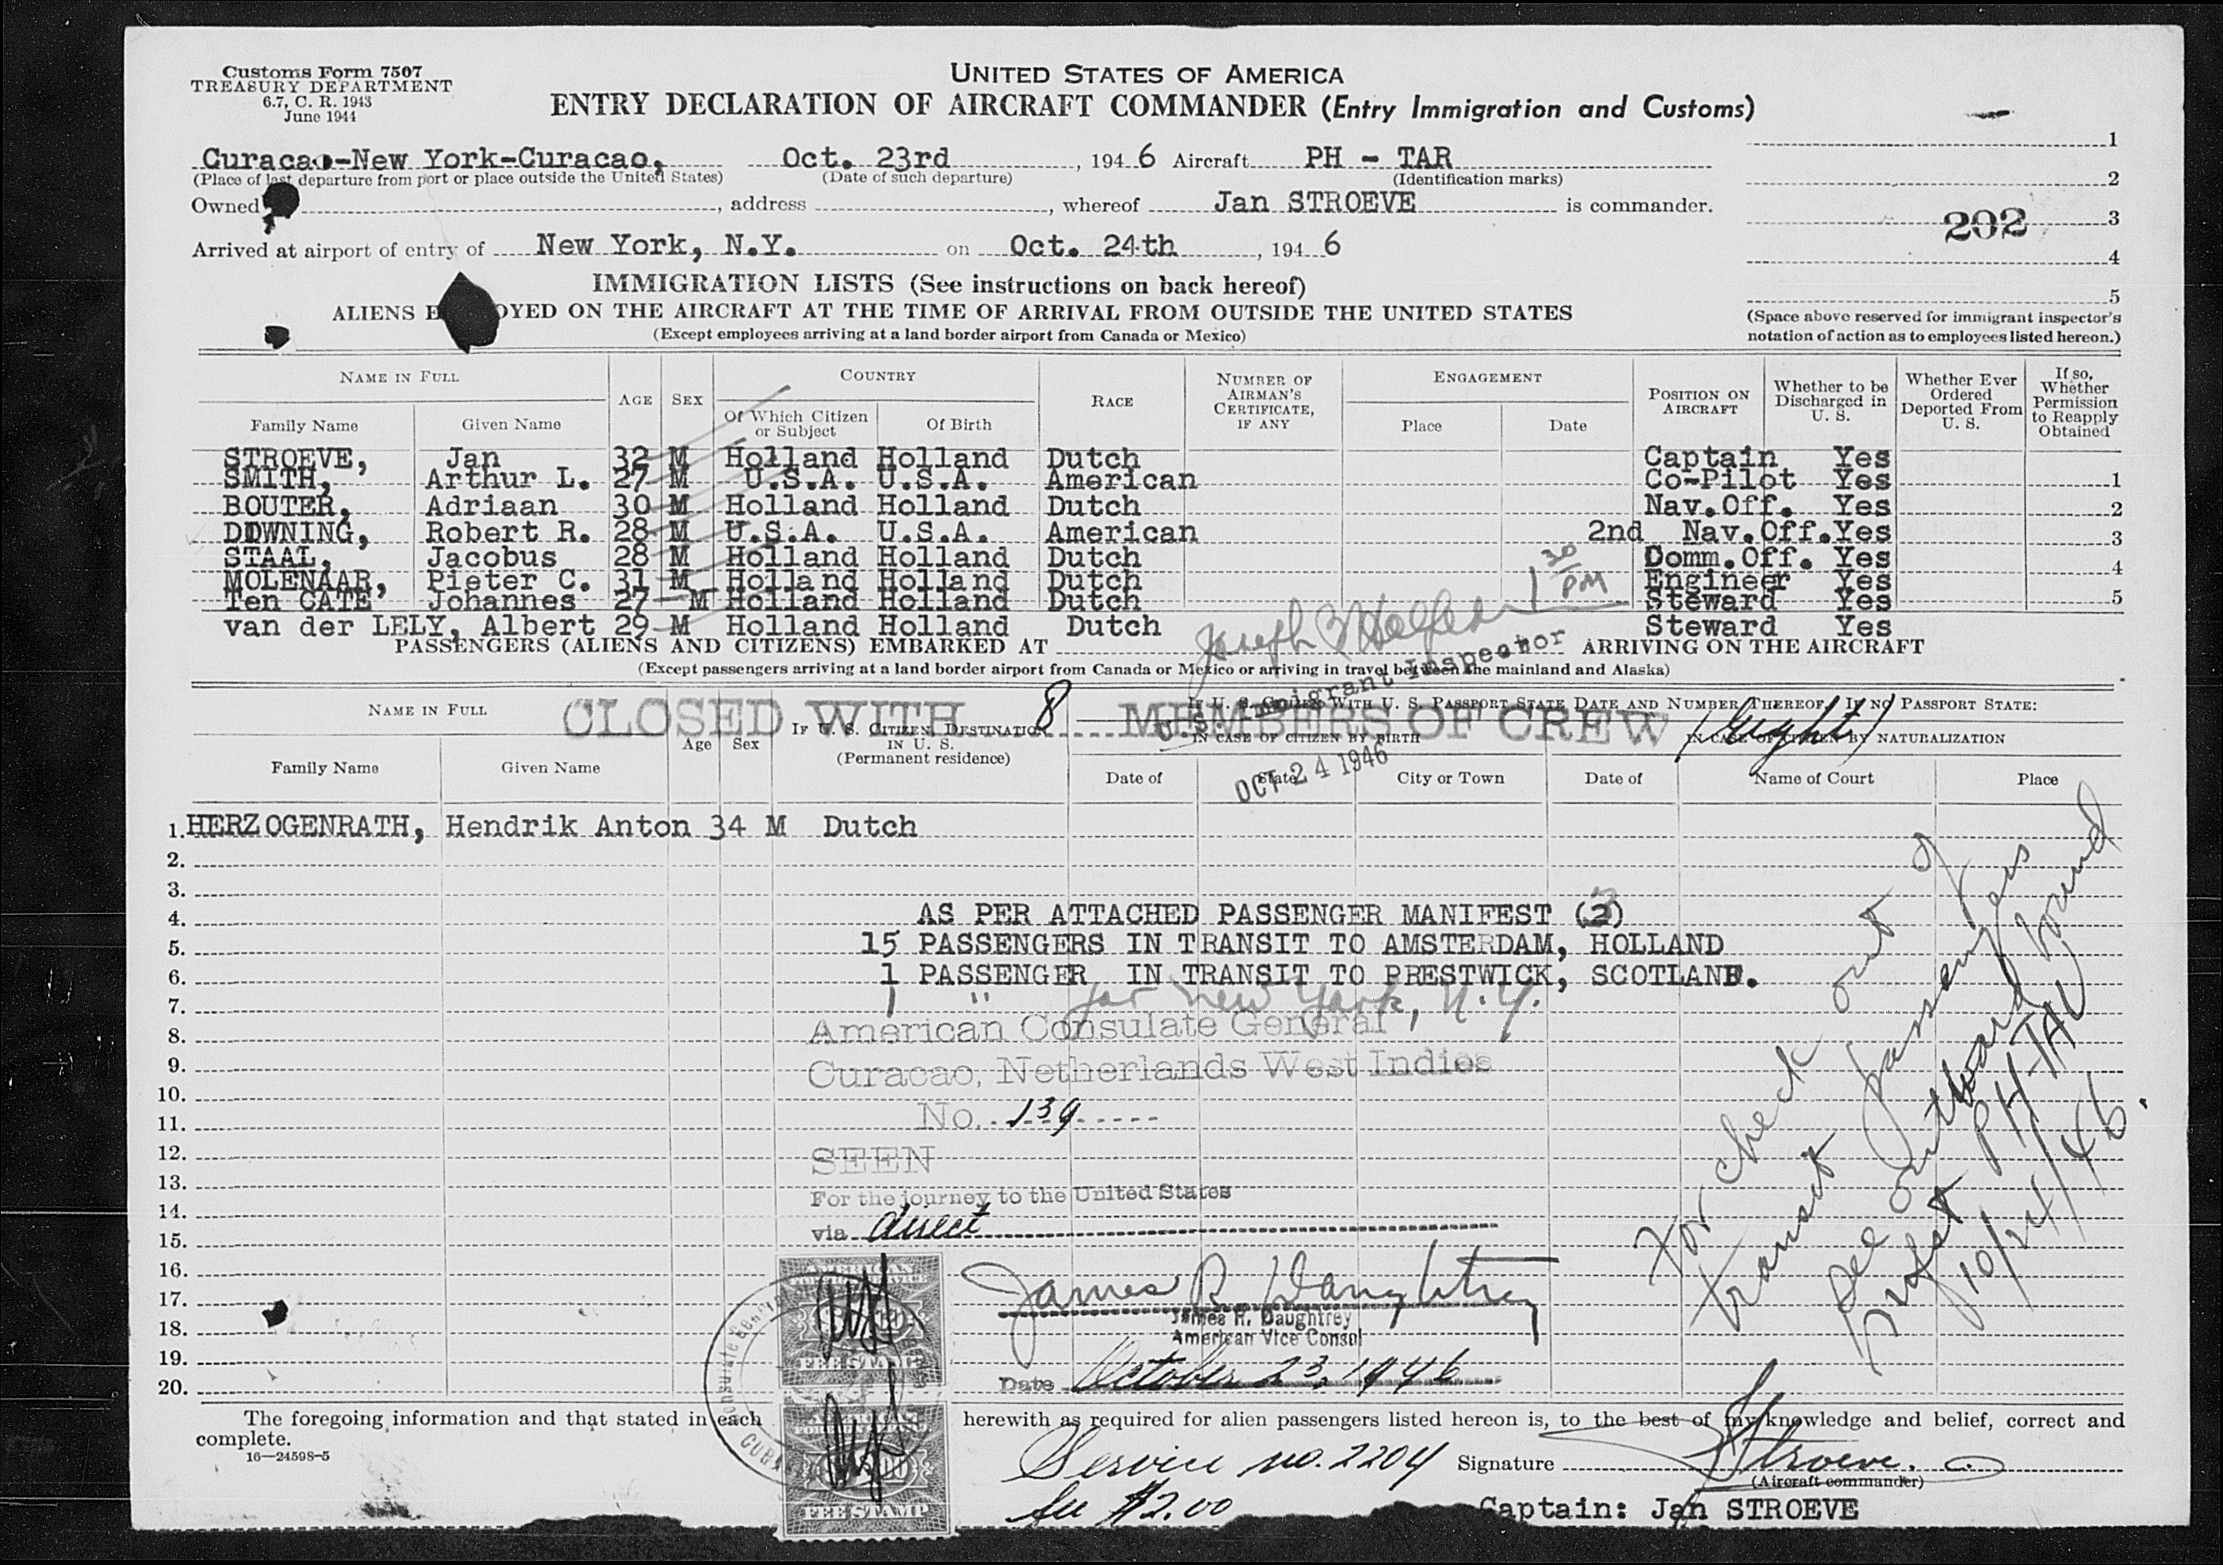 Customs Form 7507
TREASURY DEPARTMENT
6.7, C. R. 1943
June 1944
UNITED STATES OF AMERICA
ENTRY DECLARATION OF AIRCRAFT COMMANDER (Entry Immigration and Customs)
Curacao-New York-Curacao, Oct. 23rd, 1946 Aircraft PH - TAR
(Place of last departure from port or place outside the United States) (Date of such departure) (Identification marks)
Owned , address , whereof Jan STROEVE is commander.
Arrived at airport of entry of New York, N.Y. on Oct. 24th, 1946
1
2
202 3
4
5
(Space above reserved for immigrant inspector's
notation of action as to employees listed hereon.)
IMMIGRATION LISTS (See instructions on back hereof)
ALIENS E OYED ON THE AIRCRAFT AT THE TIME OF ARRIVAL FROM OUTSIDE THE UNITED STATES
(Except employees arriving at a land border airport from Canada or Mexico)
NAME IN FULL AGE SEX COUNTRY RACE NUMBER OF AIRMAN'S CERTIFICATE, IF ANY ENGAGEMENT POSITION ON AIRCRAFT Whether to be Discharged in U. S. Whether Ever Ordered Deported From U. S. If so, Whether Permission to Reapply Obtained
Family Name Given Name Of Which Citizen or Subject Of Birth Place Date
STROEVE, Jan 32 M Holland Holland Dutch Captain Yes
SMITH, Arthur L. 27 M U.S.A. U.S.A. American Co-Pilot Yes 1
BOUTER, Adriaan 30 M Holland Holland Dutch Nav.Off. Yes 2
DOWNING, Robert R. 28 M U.S.A. U.S.A. American 2nd Nav.Off. Yes 3
STAAL, Jacobus 28 M Holland Holland Dutch Comm.Off. Yes
MOLENAAR, Pieter C. 31 M Holland Holland Dutch Engineer Yes 4
Ten CATE Johannes 27 M Holland Holland Dutch Steward Yes 5
van der LELY, Albert 29 M Holland Holland Dutch Steward Yes
1 30 PM
PASSENGERS (ALIENS AND CITIZENS) EMBARKED AT ARRIVING ON THE AIRCRAFT
(Except passengers arriving at a land border airport from Canada or Mexico or arriving in travel between the mainland and Alaska)
U. S. Immigrant Inspector
OCT 24 1946
CLOSED WITH 8 MEMBERS OF CREW (Eight)
NAME IN FULL Age Sex IF U. S. CITIZEN, DESTINATION IN U. S. (Permanent residence) IF U. S. CITIZEN WITH U. S. PASSPORT STATE DATE AND NUMBER THEREOF. IF NO PASSPORT STATE:
IN CASE OF CITIZEN BY BIRTH IN CASE OF CITIZEN BY NATURALIZATION
Family Name Given Name Date of State City or Town Date of Name of Court Place
1. HERZOGENRATH, Hendrik Anton 34 M Dutch
2.
3.
4. AS PER ATTACHED PASSENGER MANIFEST (2)
5. 15 PASSENGERS IN TRANSIT TO AMSTERDAM, HOLLAND
6. 1 PASSENGER IN TRANSIT TO PRESTWICK, SCOTLAND.
7. 1 " for New York, N.Y.
8. American Consulate General
9. Curacao, Netherlands West Indies
10.
11. No. 139
12. SEEN
13. For the journey to the United States
14.
15. via direct
16.
17. James R Daughtrey
18. James R. Daughtrey
American Vice Consul
19.
20. Date October 23, 1946
For check out of
transit passengers
see outward bound
PH-TAR
10/24/46.
AMERICAN
FEE STAMP
FEE STAMP
The foregoing information and that stated in each herewith as required for alien passengers listed hereon is, to the best of my knowledge and belief, correct and
complete.
16—24598-5
Service no. 2204 Signature Stroeve.
(Aircraft commander)
fee $2.00 Captain: Jan STROEVE